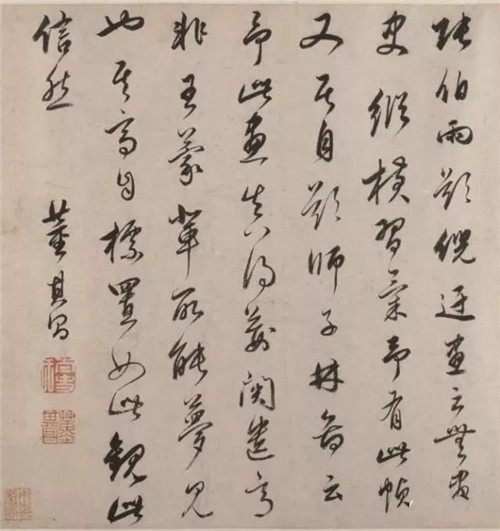 張伯雨題倪迂畫云無畫
史縱橫習氣予有此幀
又其自題師子林圖云
予此畫真得荊關遺意
非王蒙輩所能夢見
也其高自標置如此觀此
信然
董其昌